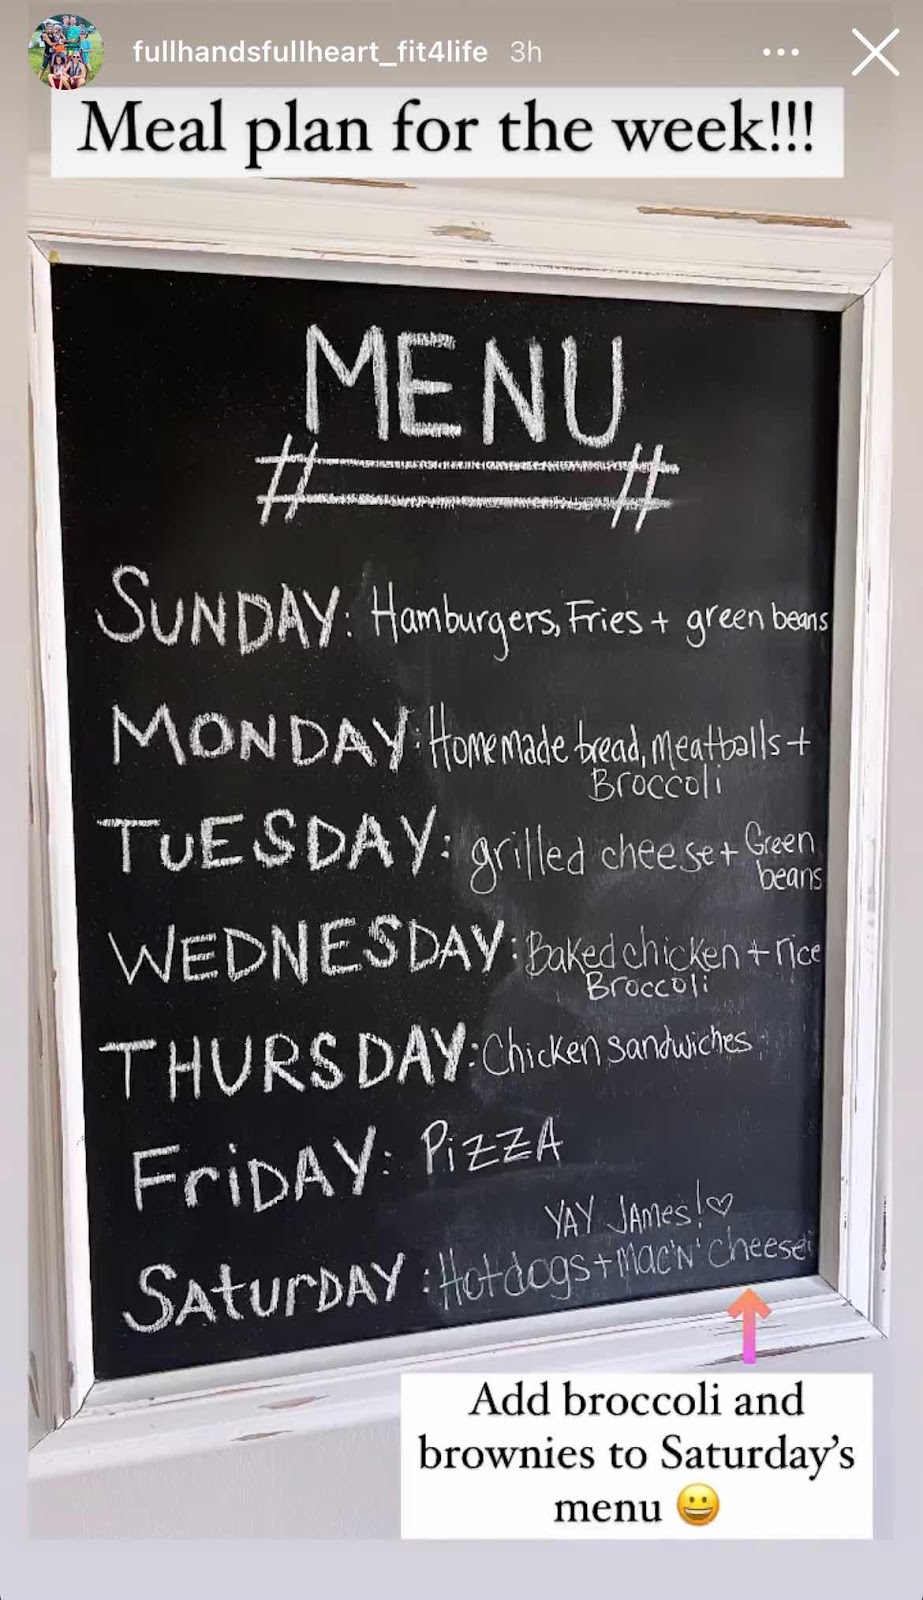 fullhandsfullheart_fit4life 3h
Meal plan for the week!!!
MENU
SUNDAY: Hamburgers, Fries + green beans
MONDAY: Homemade bread, Meatballs +
Broccoli
TUESDAY: grilled cheese + Green
beans
WEDNESDAY: Baked chicken + rice
Broccoli
THURSDAY: Chicken sandwiches
FriDAY: PiZZA
YAY JAMes! ♡
SAturDAY: Hotdogs + Mac 'N' cheese
Add broccoli and
brownies to Saturday's
menu 😀